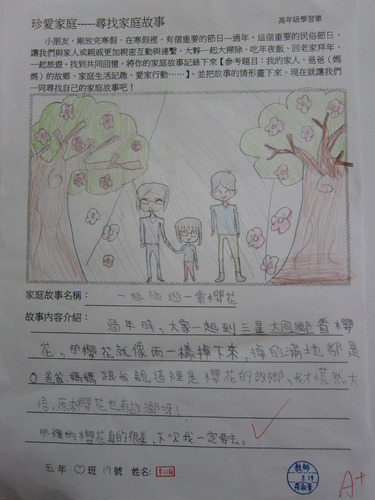 珍愛家庭-----尋找家庭故事
高年級學習單
小朋友,剛放完寒假,在寒假裡,有個重要的節日---過年,這個重要的民俗節日,
讓我們與家人或親戚更加親密互動與連繫,大夥一起大掃除、吃年夜飯、回老家拜年、
一起旅遊,找到共同回憶,將你的家庭故事記錄下來【參考題目:我的家人、爸爸(媽
媽)的故鄉、家庭生活記趣、愛家行動……】,並把故事的情形畫下來,現在就讓我們
一同尋找自己的家庭故事吧!
家庭故事名稱: 一起旅遊—賞櫻花
故事內容介紹: 過年時,大家一起到三星大同鄉看櫻
花。那櫻花就像雨一樣掉下來,掉的滿地都是
。爸爸媽媽跟我說這裡是櫻花的故鄉,我才慌然大
悟,原來櫻花也有故鄉呀!
那裡的櫻花真的很美,下次我一定要去。
五年 班 17號 姓名:
教師
2.19
A+